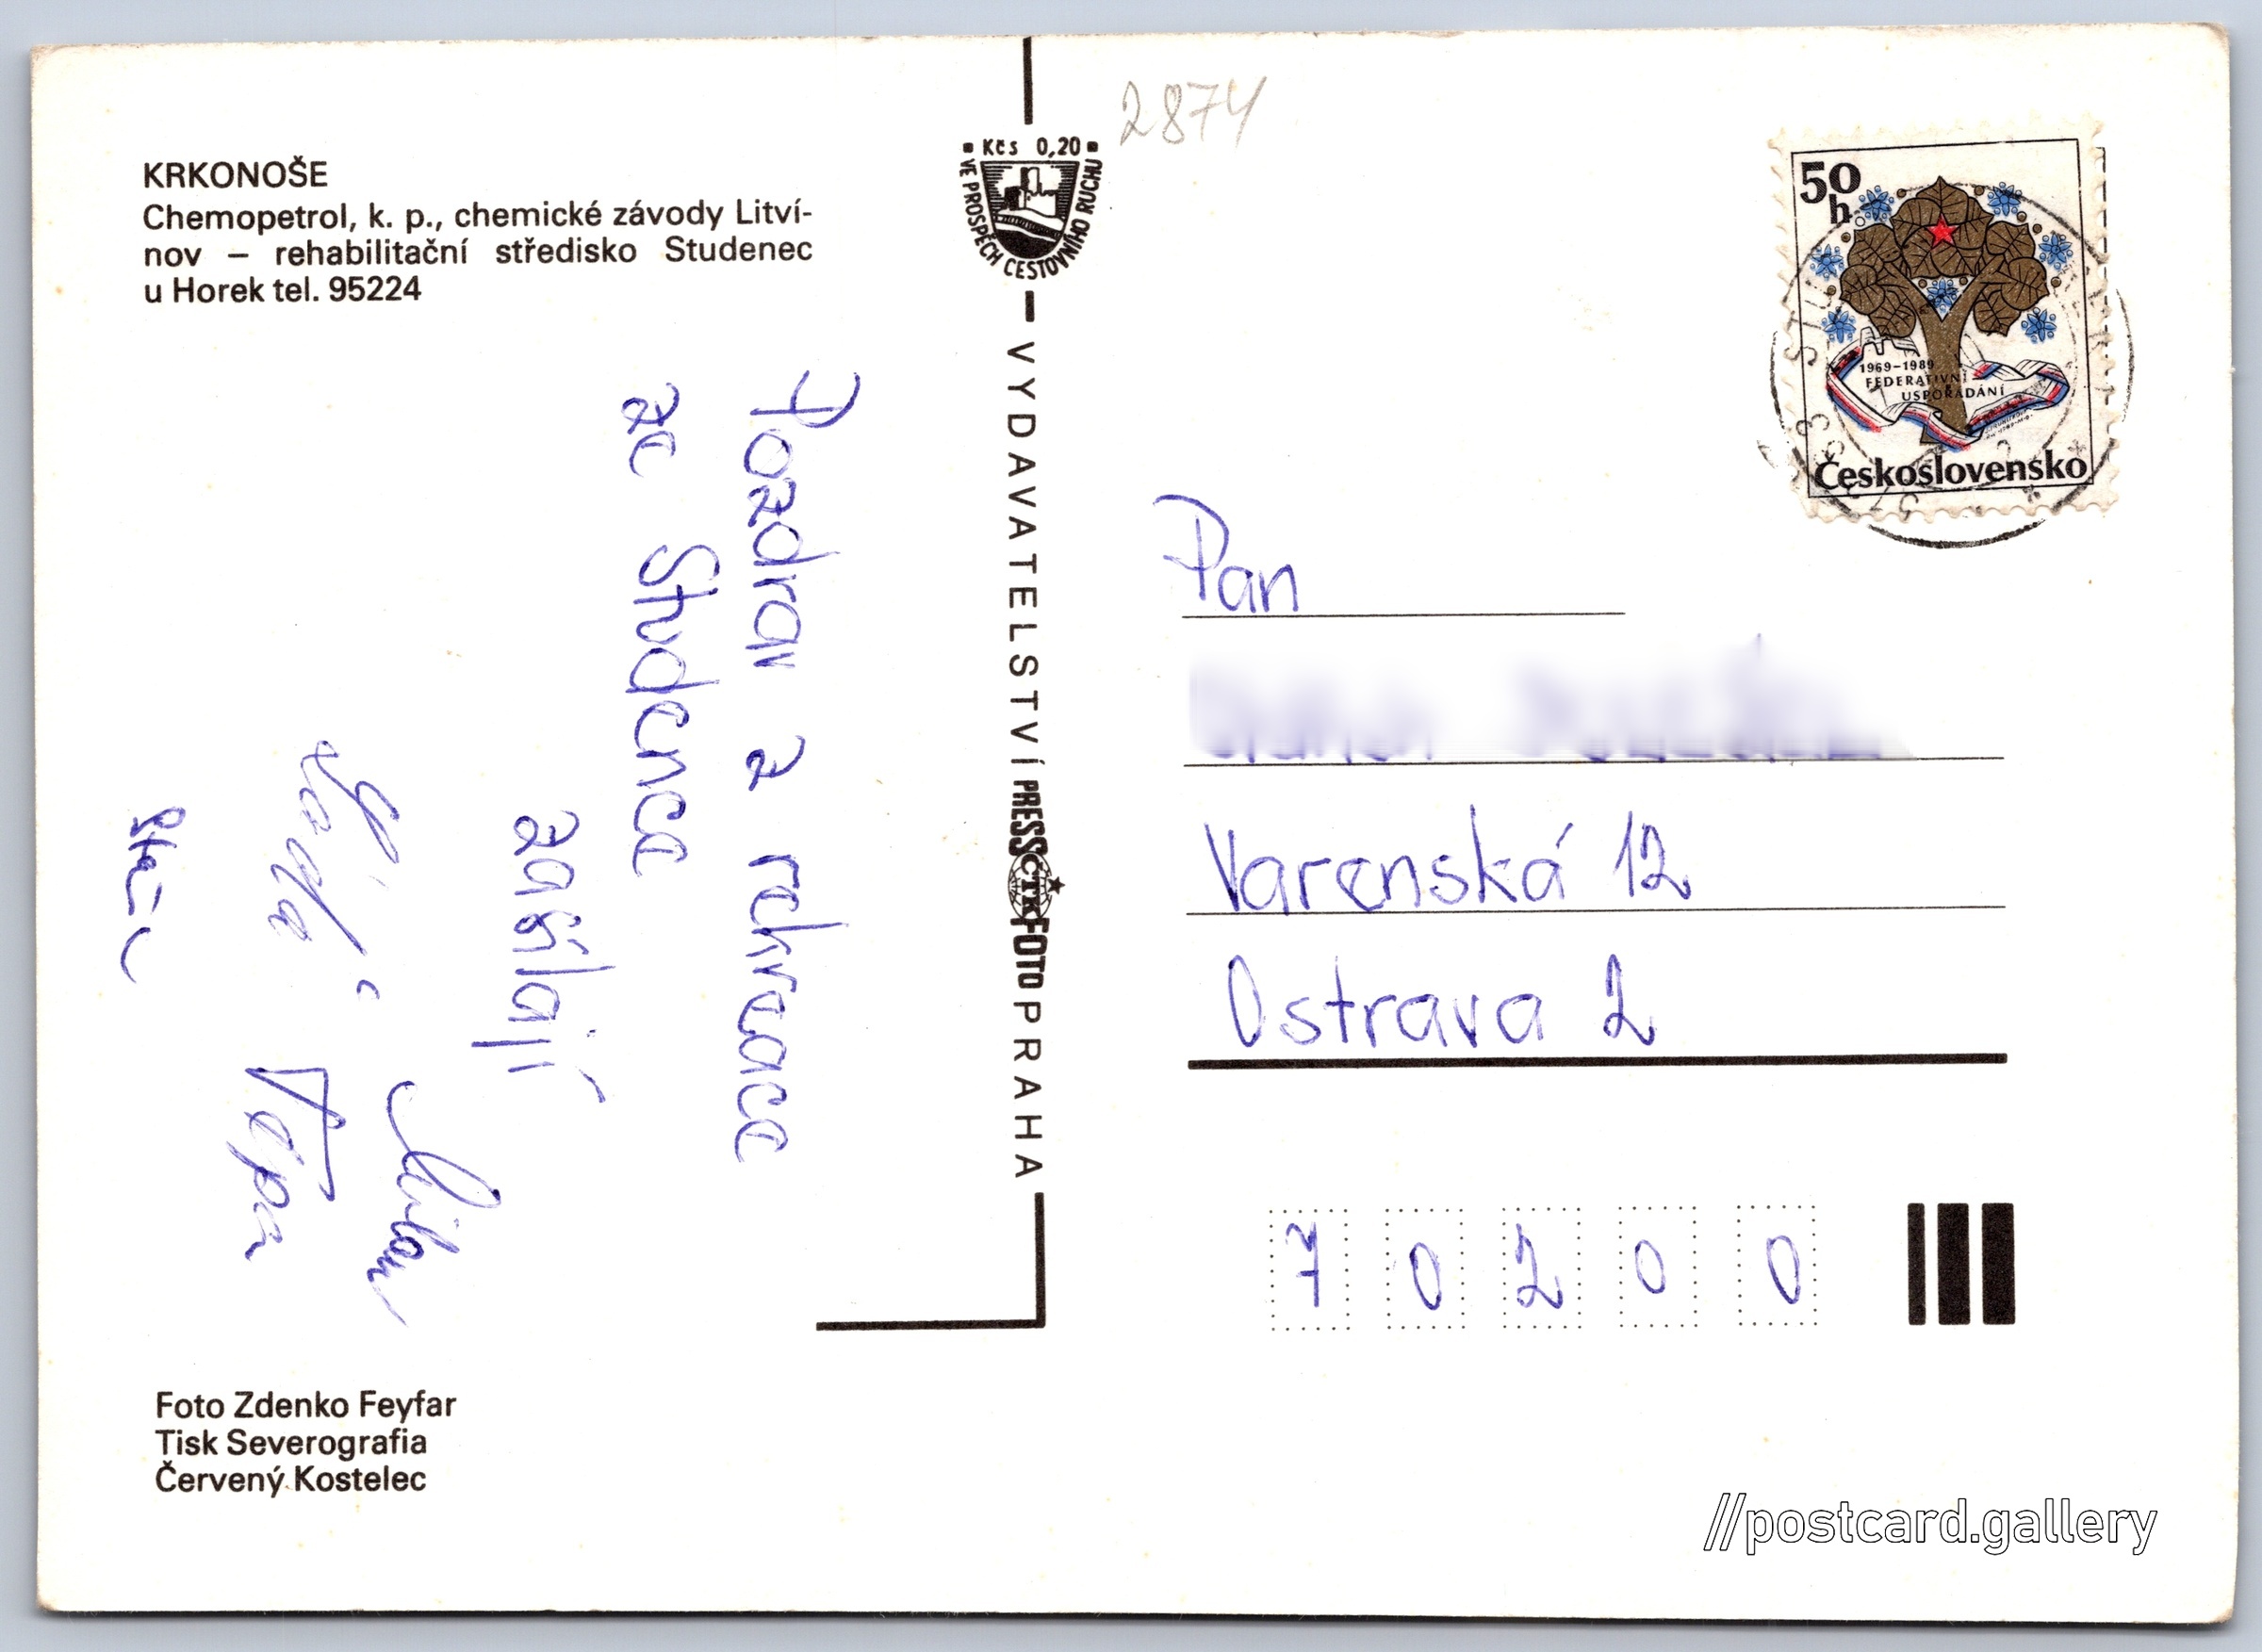 KRKONOŠE
Chemopetrol, k. p., chemické závody Litví-
nov – rehabilitační středisko Studenec
u Horek tel. 95224
Pozdrav z rekreace
ze Studence
zasílají
Milan
Láďa
Pepa
Foto Zdenko Feyfar
Tisk Severografia
Červený Kostelec
Kčs 0,20
VE PROSPĚCH CESTOVNÍHO RUCHU
VYDAVATELSTVÍ PRESSFOTO PRAHA
ČTK
2874
50
h
1969–1989
FEDERATIVNÍ
USPOŘÁDÁNÍ
Československo
Pan
Varenská 12
Ostrava 2
7 0 2 0 0
//postcard.gallery